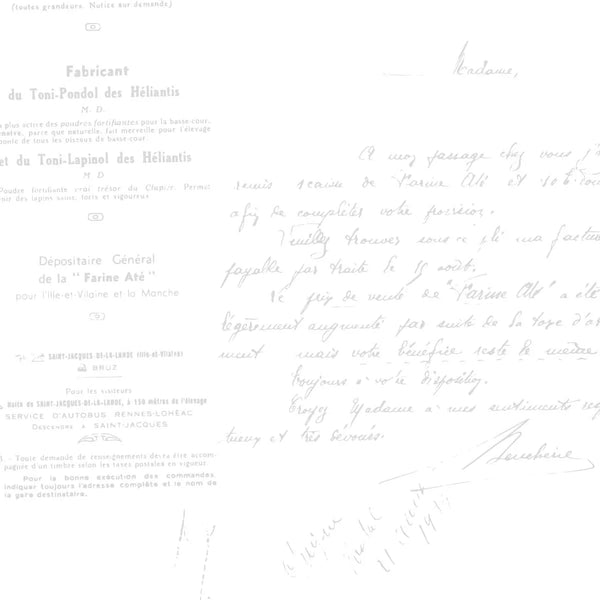 (toutes grandeurs. Notice sur demande)
Fabricant
du Toni-Pondol des Héliantis
M. D.
plus active des poudres fortifiantes pour la basse-cour,
parce que naturelle, fait merveille pour l'élevage
de tous les oiseaux de basse-cour.
et du Toni-Lapinol des Héliantis
M. D
Poudre fortifiante vrai trésor du Clapier. Permet
des lapins sains, forts et vigoureux
Dépositaire Général
de la "Farine Até"
pour l'Ille-et-Vilaine et la Manche
SAINT-JACQUES-DE-LA-LANDE (Ille-et-Vilaine)
BRUZ
Pour les visiteurs
Halte de SAINT-JACQUES-DE-LA-LANDE, à 150 mètres de l'élevage
SERVICE D'AUTOBUS RENNES-LOHÉAC
Descendre à SAINT-JACQUES
- Toute demande de renseignements devra être accom-
pagnée d'un timbre selon les taxes postales en vigueur
Pour la bonne exécution des commandes,
indiquer toujours l'adresse complète et le nom de
la gare destinataire.
Madame,
A mon passage chez vous j'a
remis de Farine Até et
afin de compléter votre provision.
Veuillez trouver sous ce pli ma factur
payable par traite le 15 août.
Le prix de vente de "Farine Até" a été
légèrement augmenté par suite de la taxe d'ar
ment mais votre bénéfice reste le même
Toujours à votre disposition.
Croyez Madame à mes sentiments res
tueux et très dévoués.